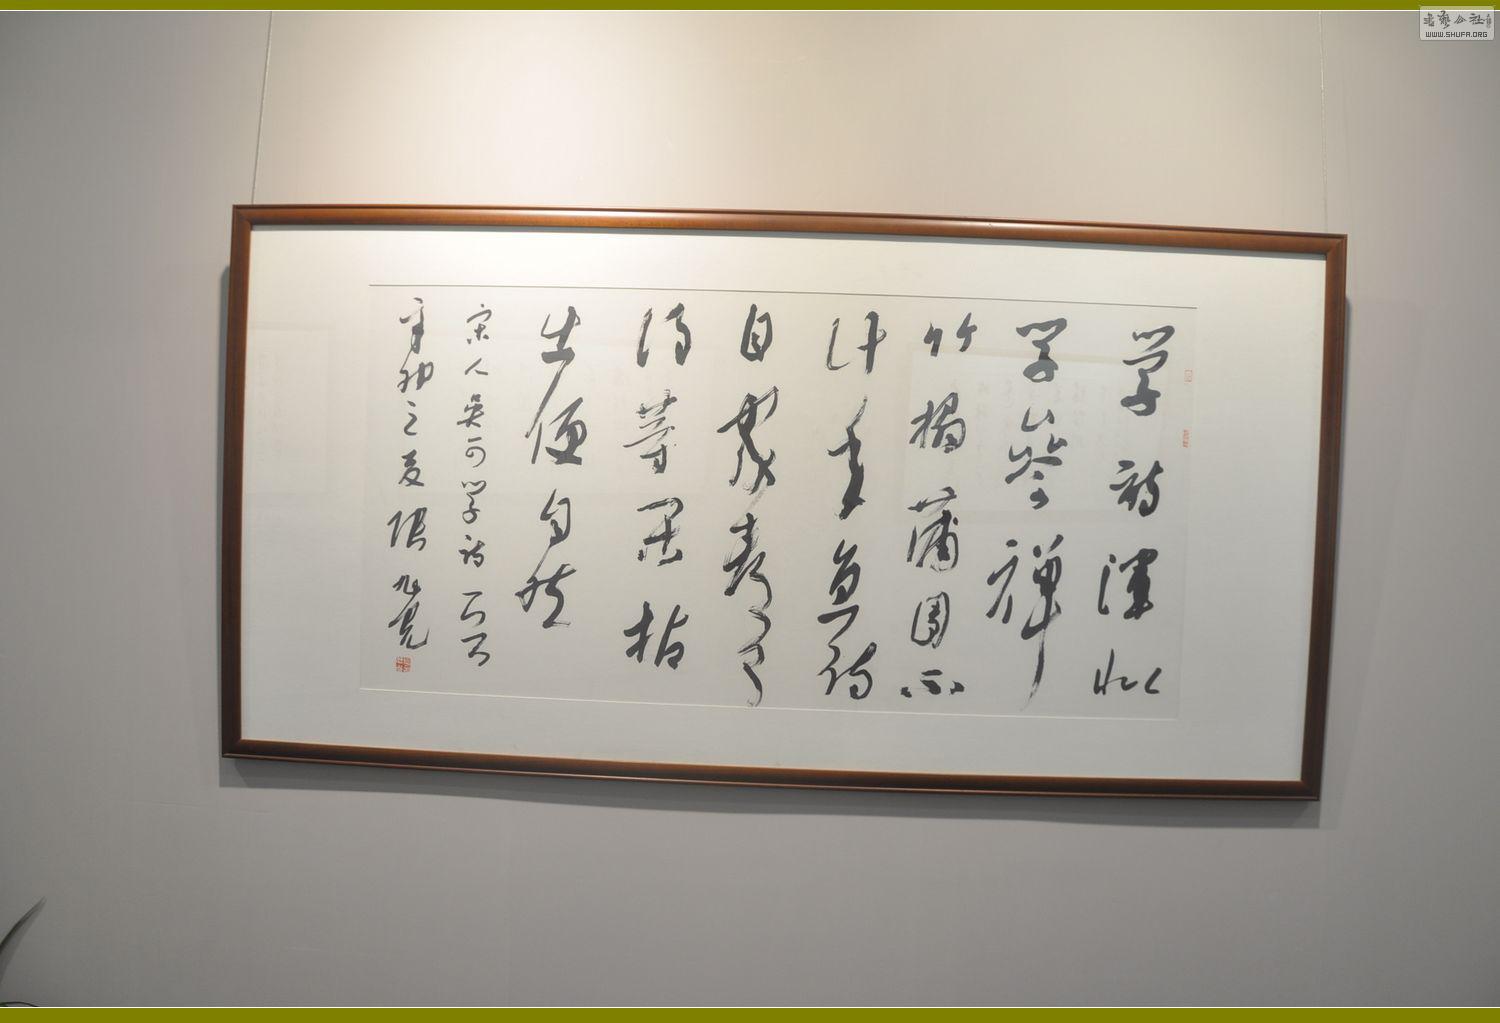 学诗浑似
学参禅
竹榻蒲团不
计年直待
自家都了
得等闲拈
出便自然
宋人吴可学诗一首
辛卯之夏张旭光
书艺公社
WWW.SHUFA.ORG